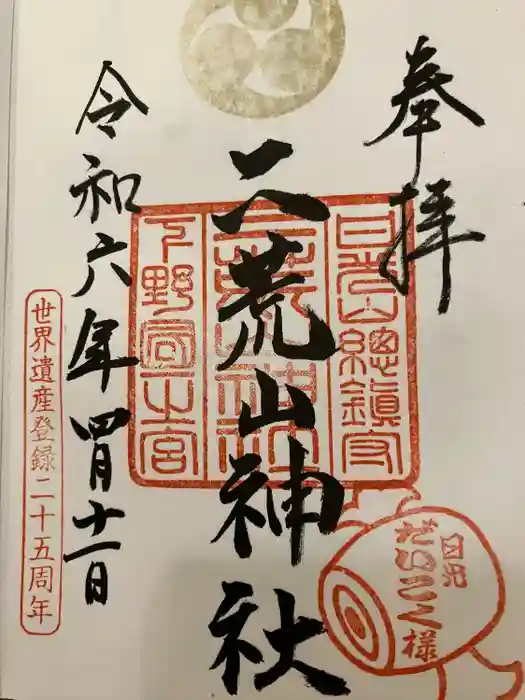 奉拝
日光山總鎮守
二荒山神社
下野國一之宮
二荒山神社
令和六年四月十一日
世界遺産登録二十五周年
日光
だいこく様